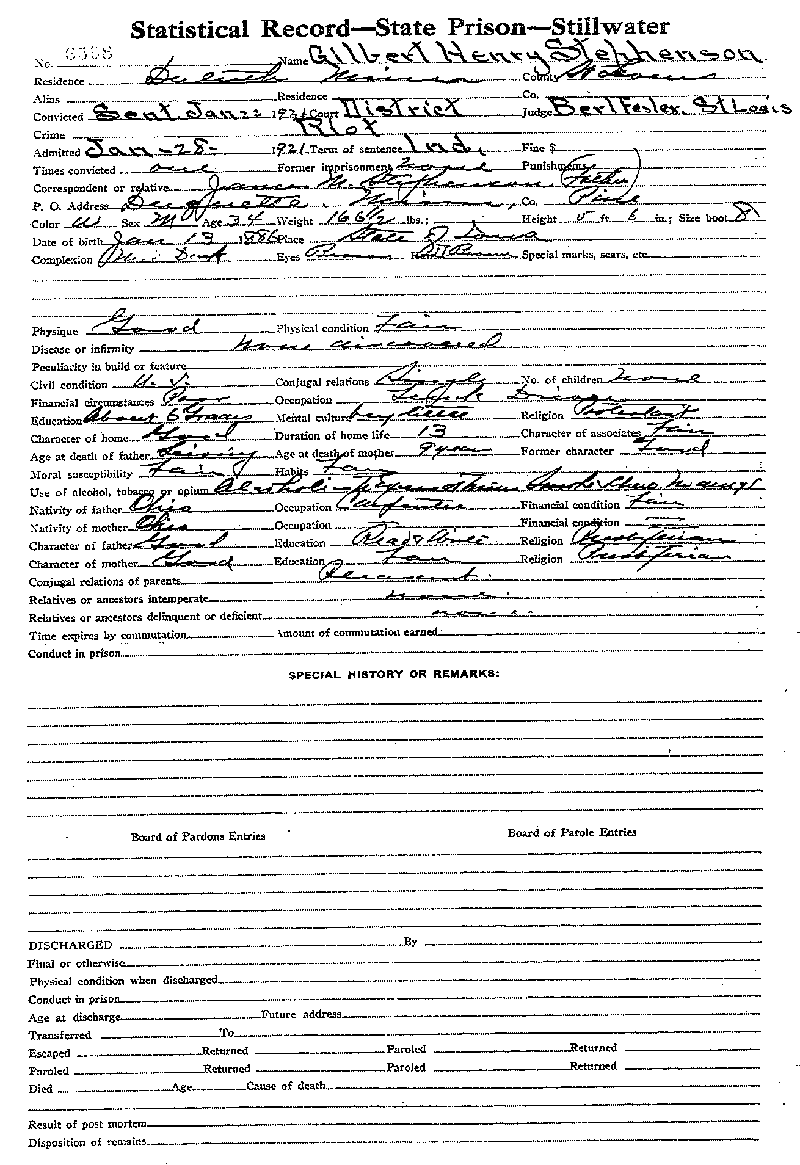 Statistical Record—State Prison—Stillwater
No. Name Gilbert Henry Stephenson
Residence Duluth Minn County
Alias Residence Co.
Convicted Sent Jan 22 1921 Court District Judge Bert Fesler, St Louis
Crime Riot
Admitted Jan - 28 - 1921. Term of sentence Ind. Fine $
Times convicted one Former imprisonment none Punishments
Correspondent or relative James M. Stephenson, (Father)
P. O. Address Duquette, Minn, Co. Pine
Color W Sex M Age 34 Weight 166½ lbs.; Height 5 ft 6 in; Size boot 8
Date of birth Jan 13 1886 Place State of Iowa
Complexion Dark Eyes Brown Hair Brown Special marks, scars, etc.
Physique Good Physical condition Fair
Disease or infirmity none discovered
Peculiarity in build or feature
Civil condition U. S. Conjugal relations Single No. of children none
Financial circumstances Poor Occupation Truck Driver
Education About 6 Grades Mental culture very little Religion Protestant
Character of home Good Duration of home life 13 Character of associates Fair
Age at death of father Living Age at death of mother 9 year Former character Good
Moral susceptibility Fair Habits Fair
Use of alcohol, tobacco or opium Alcoholic
Nativity of father Ohio Occupation Carpenter Financial condition Fair
Nativity of mother Ohio Occupation Financial condition —
Character of father Good Education Read & Write Religion Presbyterian
Character of mother Good Education Fair Religion Presbyterian
Conjugal relations of parents Pleasant
Relatives or ancestors intemperate none
Relatives or ancestors delinquent or deficient none
Time expires by commutation Amount of commutation earned
Conduct in prison
SPECIAL HISTORY OR REMARKS:
Board of Pardons Entries Board of Parole Entries
DISCHARGED By
Final or otherwise
Physical condition when discharged
Conduct in prison
Age at discharge Future address
Transferred To
Escaped Returned Paroled Returned
Paroled Returned Paroled Returned
Died Age Cause of death
Result of post mortem
Disposition of remains